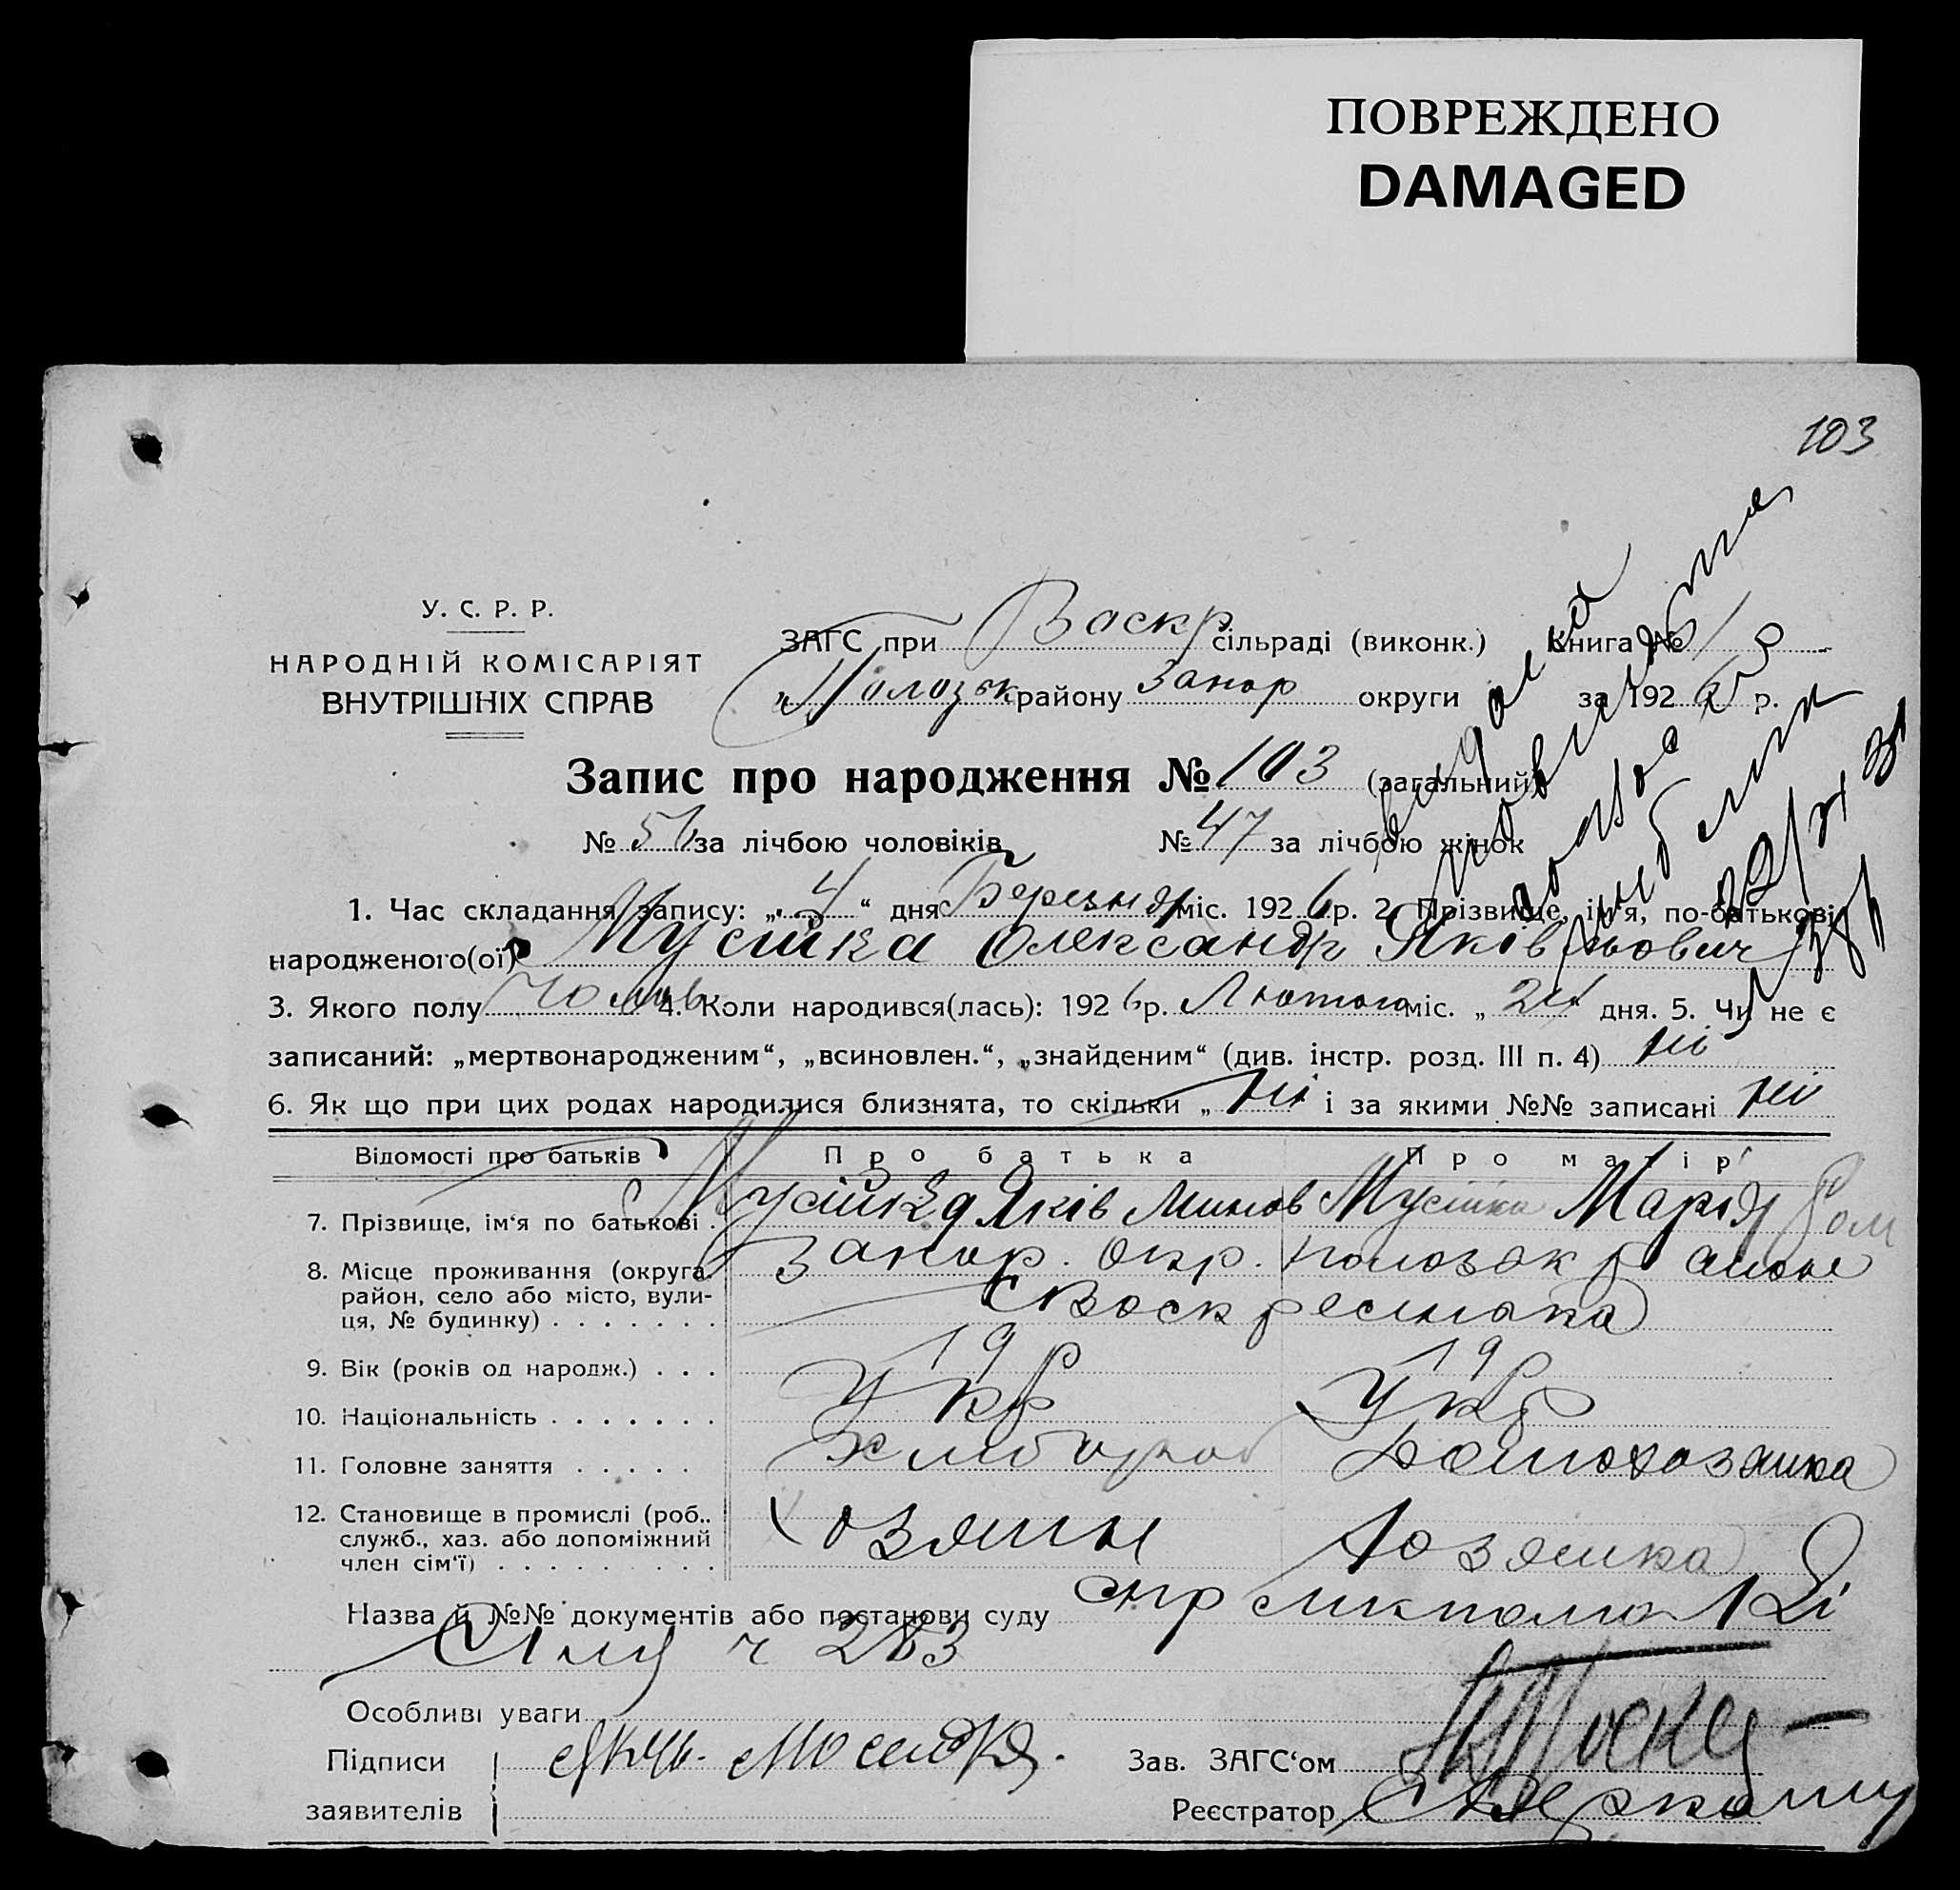 ПОВРЕЖДЕНО
DAMAGED
103
У. С. Р. Р.
НАРОДНІЙ КОМІСАРІЯТ
ВНУТРІШНІХ СПРАВ
ЗАГС при Воскр сільраді (виконк.) Книга № 1
Пологзьк району Запор округи за 1926 р.
Запис про народження № 103 (загальний)
№ 56 за лічбою чоловіків № 47 за лічбою жінок
1. Час складання запису: „4“ дня Березня міс. 1926 р. 2. Прізвище, ім‘я, по-батькові
народженого(ої) Мусійка Олександр Яківльович
3. Якого полу Чолов 4. Коли народився(лась): 1926 р. Лютого міс. „24 дня. 5. Чи не є
записаний: „мертвонародженим“, „всиновлен.“, „знайденим“ (див. інстр. розд. III п. 4) ні
6. Як що при цих родах народилися близнята, то скільки „ ні і за якими №№ записані ні
Відомості про батьків Про батька Про матір
7. Прізвище, ім‘я по батькові . Мусійка Яків Мусійка Марія
8. Місце проживання (округа, Запор. Окр. Пологзьк района
район, село або місто, вули- с Воскресенька
ця, № будинку) . . . . . . .
9. Вік (років од народж.) . . . 19 р 19 р
10. Національність . . . . . . . Укр Укр
11. Головне заняття . . . . . Хлибороб Домохозяика
12. Становище в промислі (роб., Хозяин Хозяика
служб., хаз. або допоміжний
член сім‘ї) . . . . . . . . .
Назва й №№ документів або постанови суду
ч 283
Особливі уваги
Підписи Зав. ЗАГС‘ом
заявителів Реєстратор